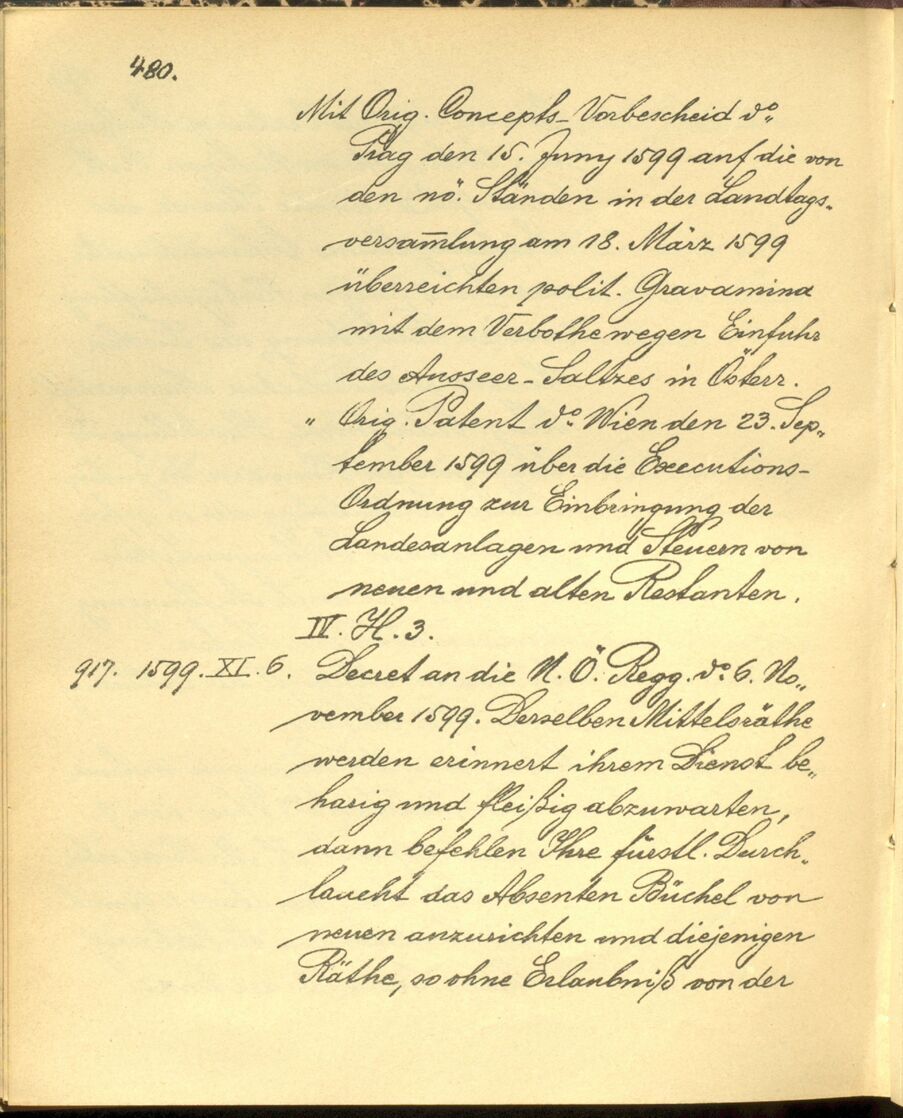 480.
Mit Orig. Concepts-Vorbescheid do.
Prag den 15. Juny 1599 auf die von
den nö. Ständen in der Landtags-
versam̅lung am 18. März 1599
überreichten polit. Gravamina
mit dem Verbothe wegen Einfuhr
des Ausseer-Saltzes in Österr.
" Orig. Patent do. Wien den 23. Sep„
tember 1599 über die Executions-
Ordnung zur Einbringung der
Landesanlagen und Steuern von
neuen und alten Restanten.
IV. H. 3.
917. 1599. XI. 6. Decret an die N. Ö. Regg. do. 6. No„
vember 1599. Derselben Mittelsräthe
werden erinnert ihrem Dienst be„
harig und fleißig abzuwarten,
dann befehlen Ihre fürstl. Durch„
laucht das Absenten Büchel von
neuen anzurichten und diejenigen
Räthe, so ohne Erlaubniß von der